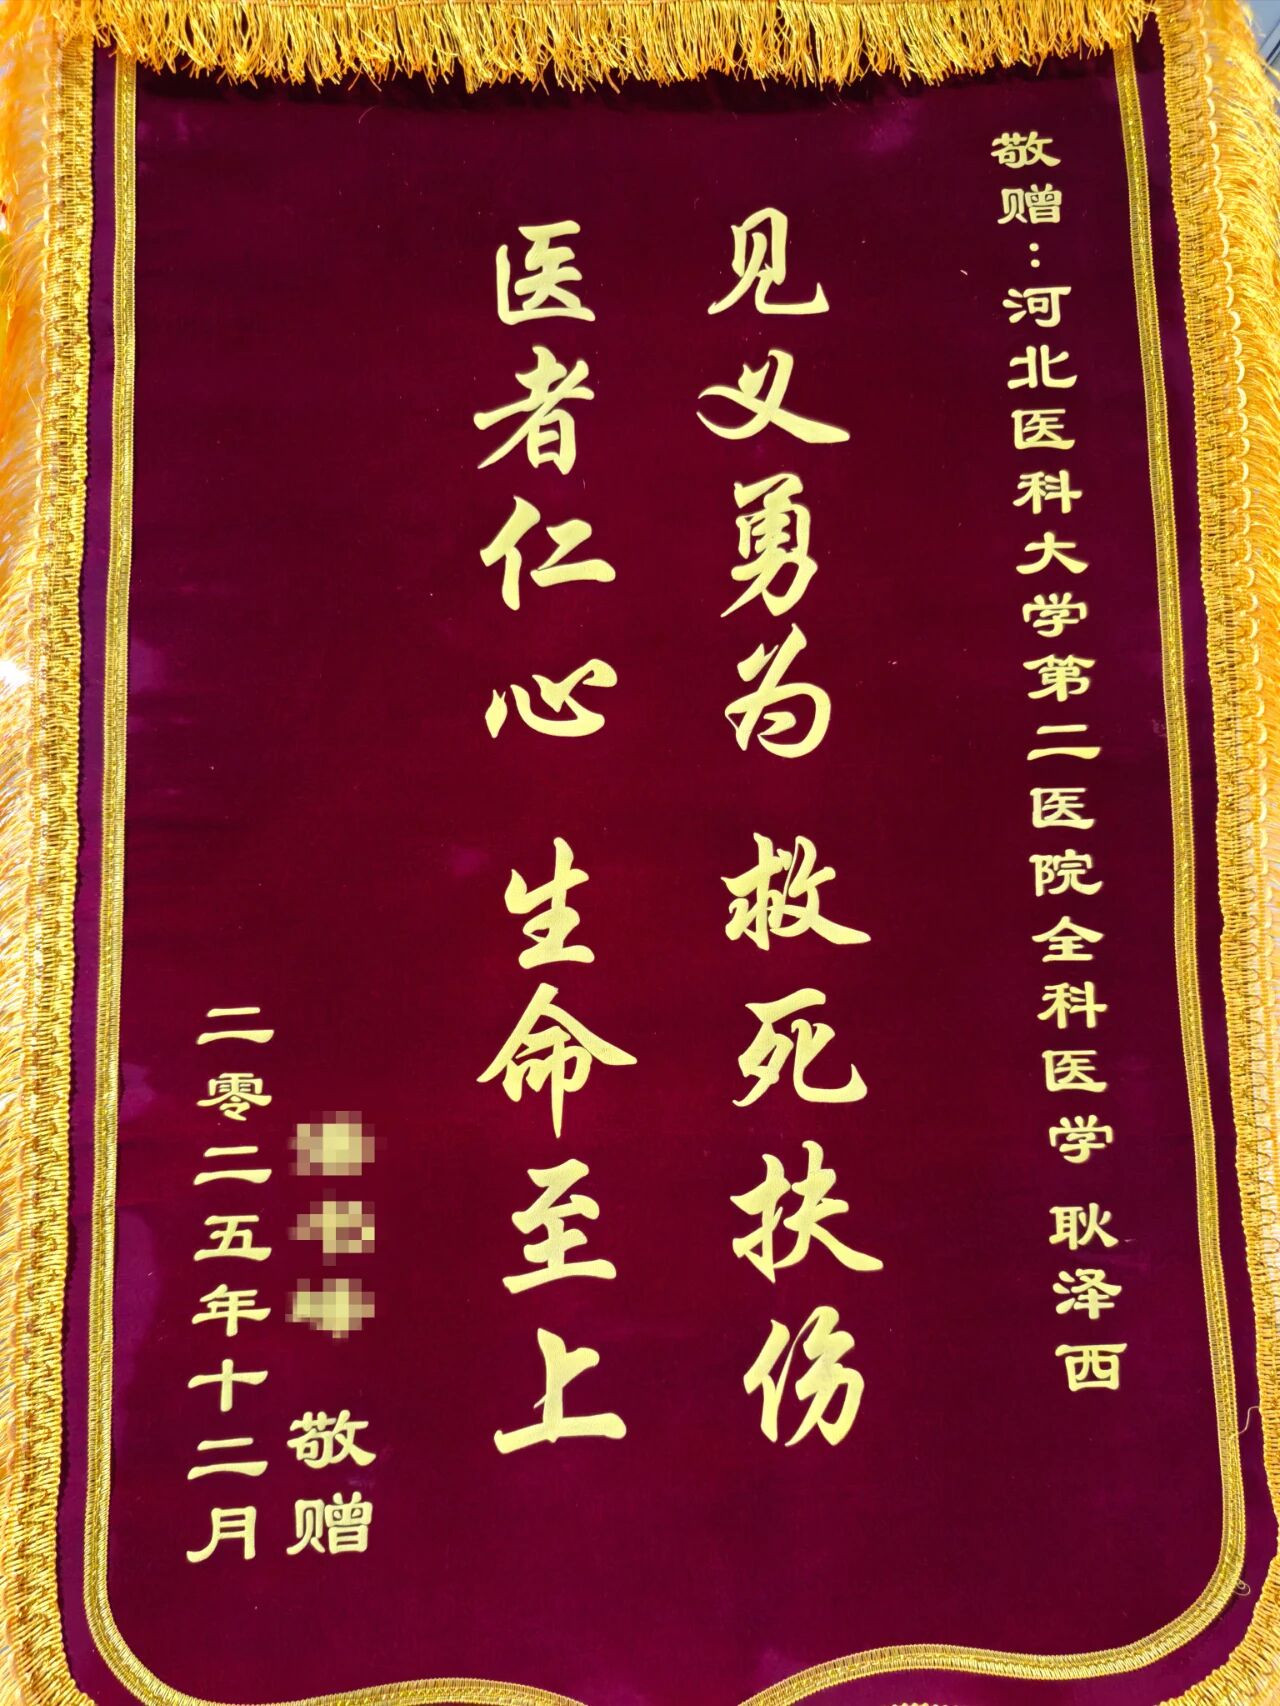 敬赠：河北医科大学第二医院全科医学 耿泽西
见义勇为 救死扶伤
医者仁心 生命至上
敬赠
二零二五年十二月